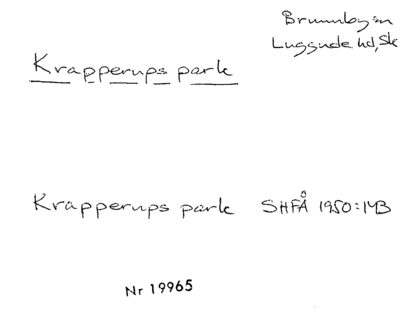 Brunnby sn
Luggude hd, Sk
Krapperups park
Krapperups park SHFÅ 1950:143
Nr 19965